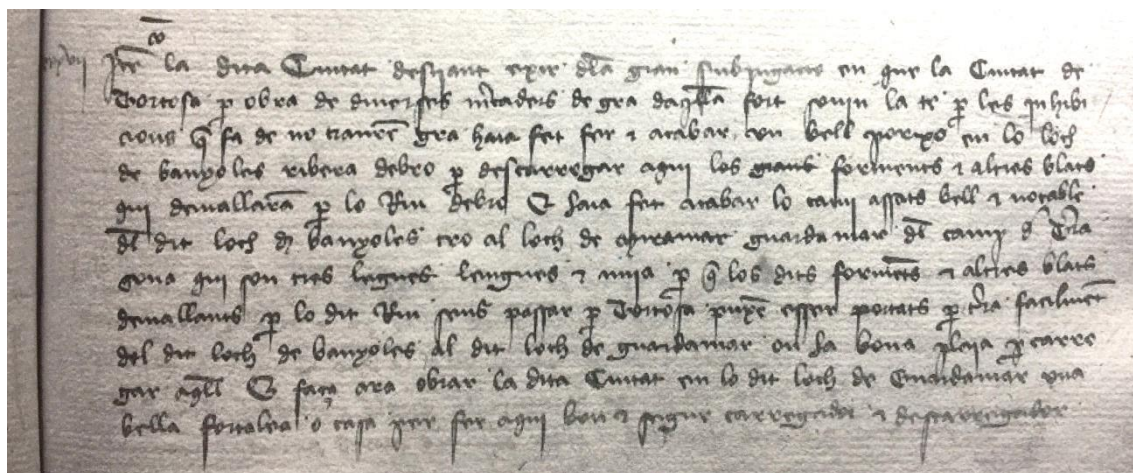 Ite la dita Ciutat desijant exir dla gran subjugacio en que la Ciutat de
Tortosa p obra de diverses mcaders de gra daqlla fort sovin la te p les inhibi
cions q fa de no traure gra haia feit fer e acabar un bell porxo en lo loch
de banyoles ribera debro p descarregar aqui los grans forments e altres blats
qui devallara p lo Riu debro Et haia feit acabar lo cami assats bell e notable
dl dit loch d banyoles tro al loch de miramar guardamar dl camp d Tra
gona qui son tres legues lengues e mija p q los dits forments e altres blats
devallants p lo dit Riu sens passar p Tortosa puxe esser portats p tra facilmet
del dit loch de banyoles al dit loch de guardamar on ha bona plaja p carre
gar aqll Et faça ara obrar la dita Ciutat en lo dit loch de Guardamar una
bella fortalea o casa per fer aqui bon e segur carregador e descarregador